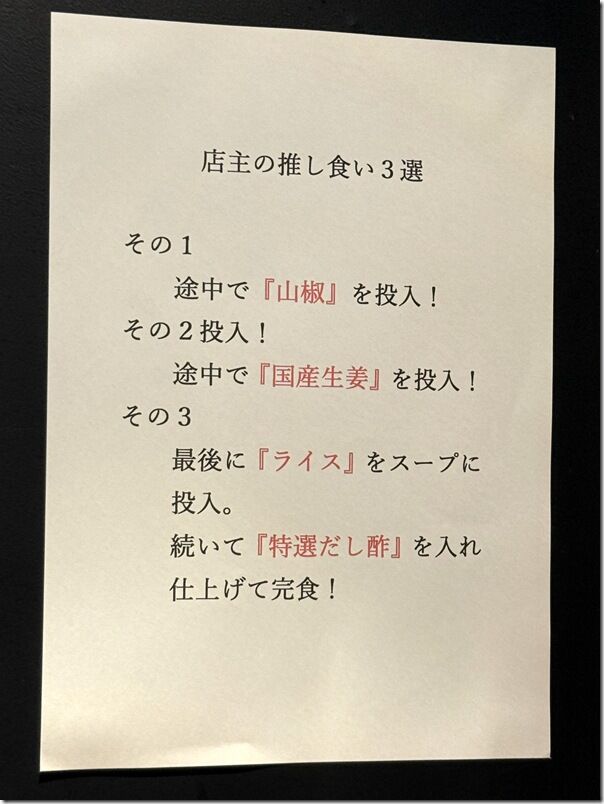 店主の推し食い３選
その１
途中で『山椒』を投入！
その２投入！
途中で『国産生姜』を投入！
その３
最後に『ライス』をスープに
投入。
続いて『特選だし酢』を入れ
仕上げて完食！